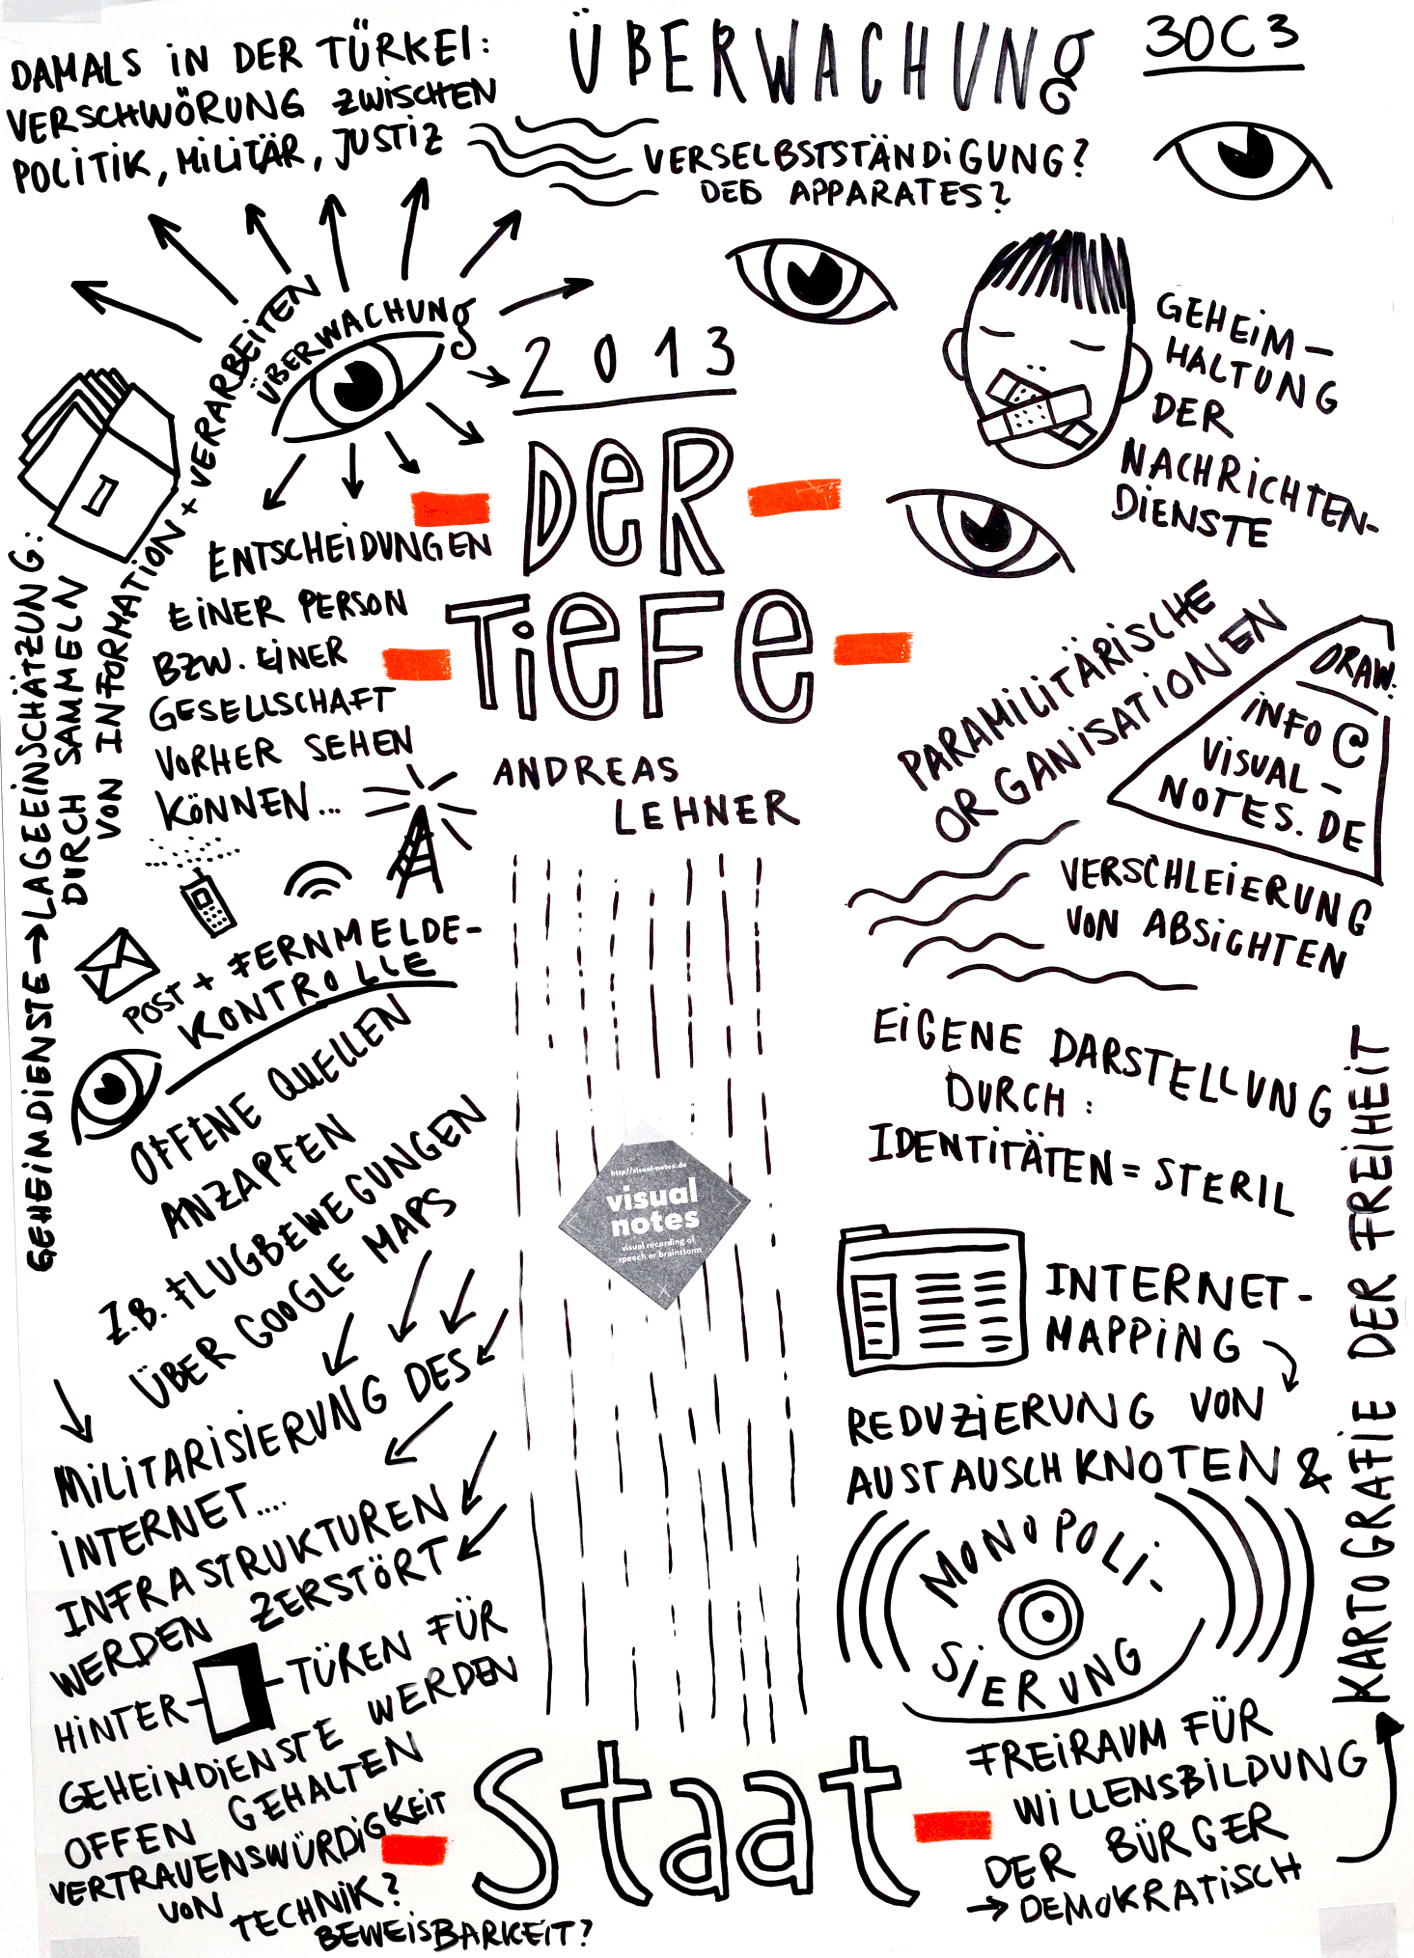 DAMALS IN DER TÜRKEI:
VERSCHWÖRUNG ZWISCHEN
POLITIK, MILITÄR, JUSTIZ
ÜBERWACHUNG
30C3
VERSELBSTSTÄNDIGUNG?
DES APPARATES?
ÜBERWACHUNG
2013
DER
TIEFE
ANDREAS
LEHNER
GEHEIM-
HALTUNG
DER
NACHRICHTEN-
DIENSTE
GEHEIMDIENSTE → LAGEEINSCHÄTZUNG:
DURCH SAMMELN
VON INFORMATION + VERARBEITEN
ENTSCHEIDUNGEN
EINER PERSON
BZW. EINER
GESELLSCHAFT
VORHER SEHEN
KÖNNEN...
PARAMILITÄRISCHE
ORGANISATIONEN
DRAW.
INFO@
VISUAL-
NOTES.DE
VERSCHLEIERUNG
VON ABSICHTEN
POST + FERNMELDE-
KONTROLLE
OFFENE QUELLEN
ANZAPFEN
Z.B. FLUGBEWEGUNGEN
ÜBER GOOGLE MAPS
EIGENE DARSTELLUNG
DURCH:
IDENTITÄTEN = STERIL
http://visual-notes.de
visual
notes
visual recording of
speech or brainstorm
INTERNET-
MAPPING
REDUZIERUNG VON
AUSTAUSCHKNOTEN &
MONOPOLI-
SIERUNG
MILITARISIERUNG DES
INTERNET....
INFRASTRUKTUREN
WERDEN ZERSTÖRT
HINTER-TÜREN FÜR
GEHEIMDIENSTE WERDEN
OFFEN GEHALTEN
VERTRAUENSWÜRDIGKEIT
VON TECHNIK?
BEWEISBARKEIT?
Staat
FREIRAUM FÜR
WILLENSBILDUNG
DER BÜRGER
→ DEMOKRATISCH
KARTOGRAFIE DER FREIHEIT